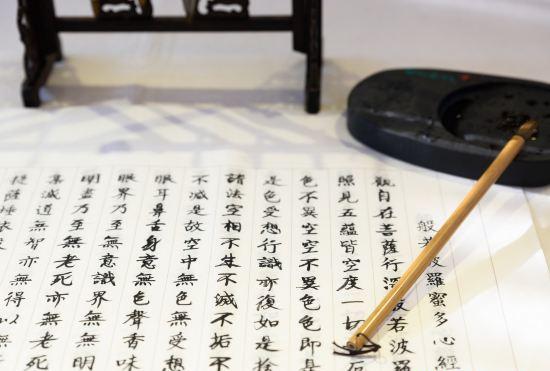 般若波羅蜜多心經
觀自在菩薩行深般若波羅
照見五蘊皆空度一切
色不異空空不異色色即是
是色受想行識亦復如是捨
諸法空相不生不滅不垢不
不減是故空中無色無受想
眼耳鼻舌身意無色聲香味
眼界乃至無意識界無無明
明盡乃至無老死亦無老死
集滅道無智亦無得以
提薩埵依